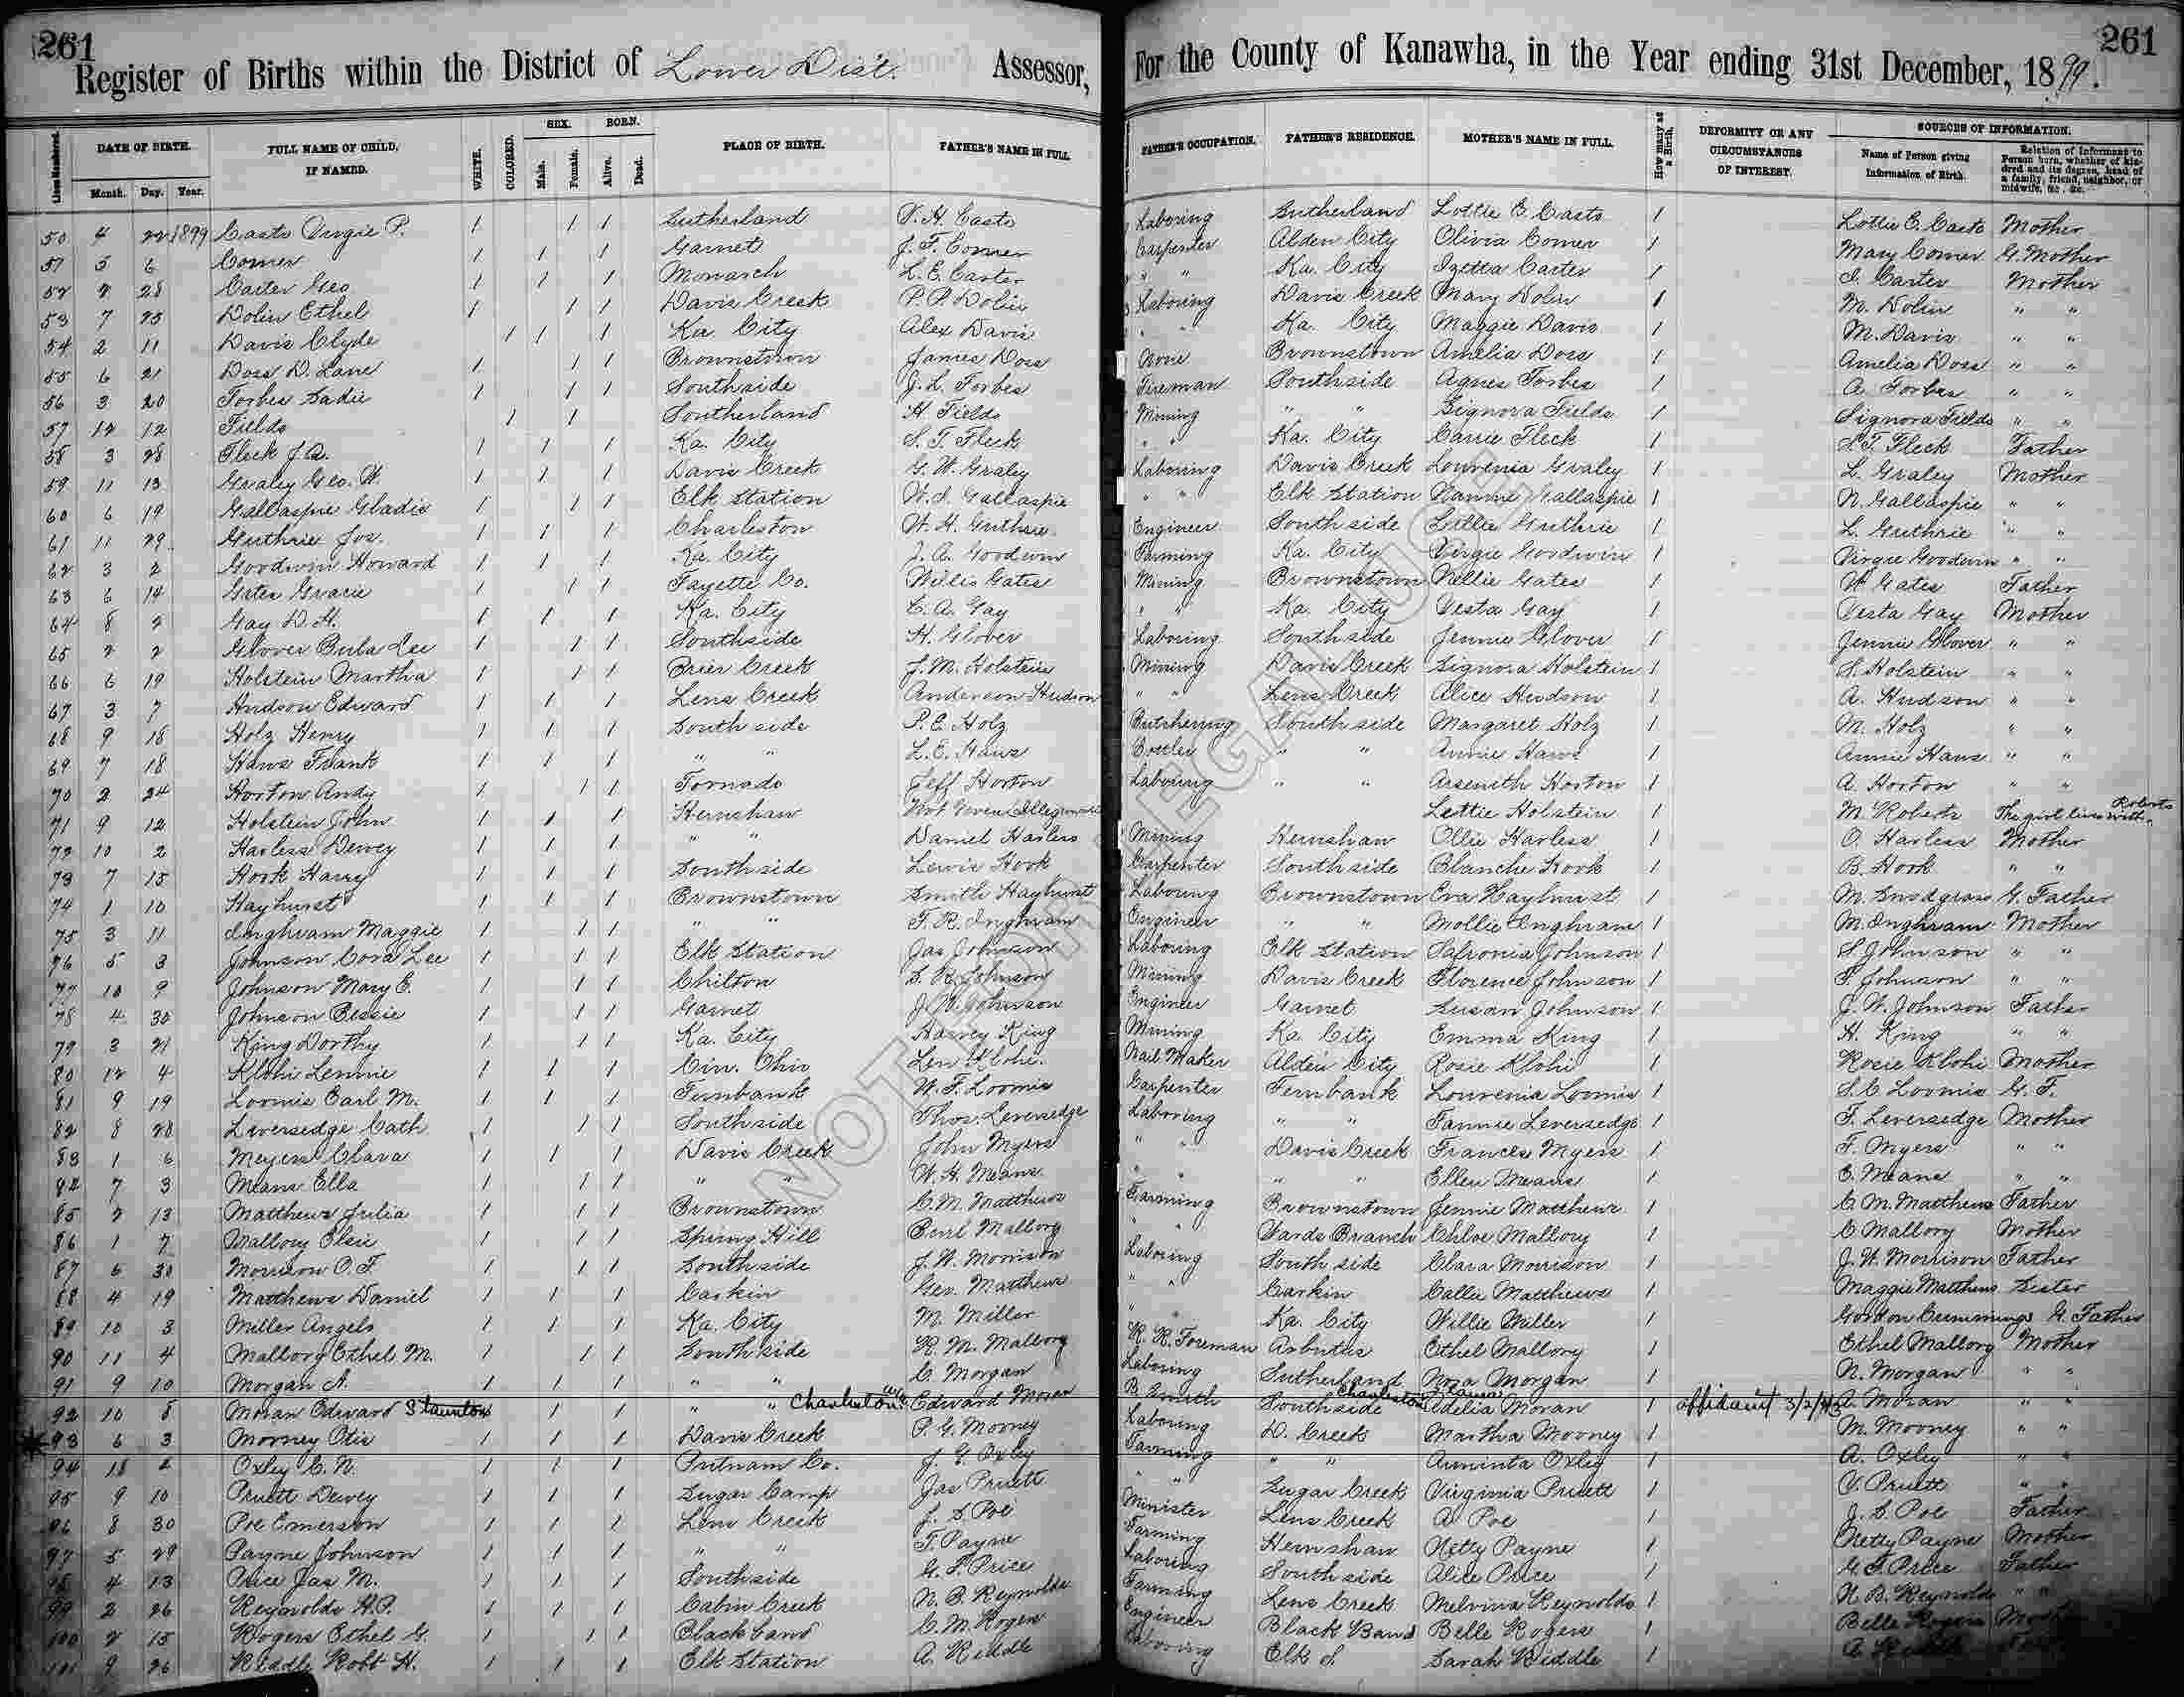 261
261
Register of Births within the District of Lower Dist. Assessor, For the County of Kanawha, in the Year ending 31st December, 1899.
Lines Numbered. DATE OF BIRTH. Month. Day. Year. FULL NAME OF CHILD, IF NAMED. WHITE. COLORED. SEX. Male. Female. BORN. Alive. Dead. PLACE OF BIRTH. FATHER'S NAME IN FULL FATHER'S OCCUPATION. FATHER'S RESIDENCE. MOTHER'S NAME IN FULL. How many at a birth. DEFORMITY OR ANY CIRCUMSTANCES OF INTEREST. SOURCES OF INFORMATION. Name of Person giving Information of Birth. Relation of Informant to Person born, whether of kindred and its degree, head of a family, friend, neighbor, or midwife, &c. &c.
50 4 22 1899 Casto Virgie P. 1 1 1 Sutherland Casto Laboring Sutherland Lottie E. Casto 1 Lottie E. Casto Mother
51 5 6 Comer 1 1 1 Garnet J. F. Comer Carpenter Alden City Olivia Comer 1 Mary Comer G. Mother
52 2 28 Carter Geo 1 1 1 Monarch L. E. Carter " " Ka. City Izetta Carter 1 I. Carter Mother
53 7 23 Dolin Ethel 1 1 1 Davis Creek P. P. Dolin Laboring Davis Creek Mary Dolin 1 M. Dolin " "
54 2 11 Davis Clyde 1 1 1 Ka. City Alex Davis " " Ka. City Maggie Davis 1 M. Davis " "
55 6 21 Doss D. Lane 1 1 1 Brownstown James Doss None Brownstown Amelia Doss 1 Amelia Doss " "
56 3 20 Forbes Sadie 1 1 1 Southside J. L. Forbes Fireman Southside Agnes Forbes 1 A. Forbes " "
57 12 12 Fields 1 1 Southerland H. Fields Mining " " Signora Fields 1 Signora Fields " "
58 3 28 Fleck J. A. 1 1 1 Ka. City S. T. Fleck " " Ka. City Carrie Fleck 1 S. T. Fleck Father
59 11 13 Graley Geo. W. 1 1 1 Davis Creek G. W. Graley Laboring Davis Creek Louvenia Graley 1 L. Graley Mother
60 6 19 Gallaspie Gladis 1 1 1 Elk Station W. I. Gallaspie " " Elk Station Nannie Gallaspie 1 N. Gallaspie " "
61 11 29 Guthrie Jos. 1 1 1 Charleston W. H. Guthrie Engineer South side Lillie Guthrie 1 L. Guthrie " "
62 3 2 Goodwin Howard 1 1 1 Ka. City J. A. Goodwin Farming Ka. City Virgie Goodwin 1 Virgie Goodwin " "
63 6 14 Gates Gracie 1 1 1 Fayette Co. Willis Gates Mining Brownstown Nellie Gates 1 W Gates Father
64 8 2 Gay D. H. 1 1 1 Ka. City C. A. Gay " " Ka. City Vesta Gay 1 Vesta Gay Mother
65 2 2 Glover Bula Lee 1 1 1 Southside H. Glover Laboring Southside Jennie Glover 1 Jennie Glover " "
66 6 19 Holstein Martha 1 1 1 Brier Creek J. M. Holstein Mining Davis Creek Signora Holstein 1 S. Holstein " "
67 3 7 Hudson Edward 1 1 1 Lens Creek Anderson Hudson " " Lens Creek Alice Hudson 1 A. Hudson " "
68 9 18 Holz Henry 1 1 1 South side P. E. Holz Butchering South side Margaret Holz 1 M. Holz " "
69 7 18 Haws Frank 1 1 1 " " L. E. Haws Bottler " " Annie Haws 1 Annie Haws " "
70 2 24 Horton Andy 1 1 1 Tornado Jeff Horton Laboring " " Arsenith Horton 1 A. Horton " "
71 9 12 Holstein John 1 1 1 Hernshaw Not Given Lettie Holstein 1 M Roberts The girl lives with Roberts
72 10 2 Harless Dewey 1 1 1 " " Daniel Harless Mining Hernshaw Ollie Harless 1 O. Harless Mother
73 7 15 Hook Harry 1 1 1 Southside Lewis Hook Carpenter Southside Blanche Hook 1 B. Hook " "
74 1 10 Hayhurst 1 1 1 Brownstown Smith Hayhurst Laboring Brownstown Eva Hayhurst 1 M. Snodgrass G. Father
75 3 11 Inghram Maggie 1 1 1 " " T. R. Inghram Engineer " " Mollie Inghram 1 M. Inghram Mother
76 5 3 Johnson Cora Lee 1 1 1 Elk Station Jas Johnson Laboring Elk Station Safronia Johnson 1 S Johnson " "
77 10 9 Johnson Mary E. 1 1 1 Chilton S. R. Johnson Mining Davis Creek Florence Johnson 1 F. Johnson " "
78 4 30 Johnson Bessie 1 1 1 Garnet J. W. Johnson Engineer Garnet Susan Johnson 1 J. W. Johnson Father
79 3 21 King Dorthy 1 1 1 Ka. City Harvey King Mining Ka. City Emma King 1 H. King " "
80 12 4 Klohi Lennie 1 1 1 Cin. Ohio Len Klohi. Nail Maker Alden City Rosie Klohi 1 Rosie Klohi Mother
81 9 19 Loomis Earl M. 1 1 1 Fernbank W. F. Loomis Carpenter Fernbank Louvenia Loomis 1 S. C. Loomis G. F.
82 8 28 Leversedge Cath 1 1 1 Southside Thos. Leversedge Laboring " " Fannie Leversedge 1 F. Leversedge Mother
83 1 6 Meyers Clara 1 1 1 Davis Creek John Myers " " Davis Creek Frances Myers 1 F. Myers " "
82 7 3 Means Ella 1 1 1 " " W. H. Means " " " " Ellen Means 1 E. Means " "
85 2 13 Matthews Julia 1 1 1 Brownstown C. M. Matthews Farming Brownstown Jennie Matthews 1 C. M. Matthews Father
86 1 7 Mallory Elsie 1 1 1 Spring Hill Earl Mallory " " Wards Branch Chloe Mallory 1 C Mallory Mother
87 5 30 Morrison O. F. 1 1 1 Southside J. W. Morrison Laboring South side Clara Morrison 1 J. W. Morrison Father
88 4 19 Matthews Daniel 1 1 1 Carkin Geo. Matthews " " Carkin Calla Matthews 1 Maggie Matthews Sister
89 10 3 Miller Angels 1 1 1 Ka. City M. Miller " " Ka. City Willie Miller 1 Gordon Cremmings G. Father
90 11 4 Mallory Ethel M. 1 1 1 South side R. M. Mallory R. R. Foreman Arbutus Ethel Mallory 1 Ethel Mallory Mother
91 9 10 Morgan A. 1 1 1 " " C. Morgan Laboring Sutherland Nora Morgan 1 N. Morgan " "
92 10 8 Moran Edward Staunton 1 1 " " Charleston Edward Moran B. Smith Southside Charleston Adelia Moran 1 affidavit 3/2/43 A Moran " "
93 6 3 Mooney Otis 1 1 1 Davis Creek P. G. Mooney Laboring D. Creek Martha Mooney 1 M. Mooney " "
94 2 Oxley C. N. 1 1 1 Putnam Co. J. G. Oxley Farming " " Arminta Oxley 1 A. Oxley " "
95 9 10 Pruett Dewey 1 1 1 Sugar Camp Jas Pruett " " Sugar Creek Virginia Pruett 1 V. Pruett " "
96 8 30 Poe Emerson 1 1 1 Lens Creek J. S Poe Minister Lens Creek A Poe 1 J. S Poe Father
97 5 29 Payne Johnson 1 1 1 " " T. Payne Farming Hernshaw Netty Payne 1 Netty Payne Mother
98 4 13 Price Jas M. 1 1 1 Southside G. F. Price Laboring South side Alice Price 1 G. F. Price Father
99 2 26 Reynolds H. P. 1 1 1 Cabin Creek N. B. Reynolds Farming Lens Creek Melvina Reynolds 1 N B. Reynolds " "
100 2 15 Rogers Ethel G. 1 1 1 Black band C. M. Rogers Engineer Black Band Belle Rogers 1 Belle Rogers
101 9 26 Riddle Robt H. 1 1 1 Elk Station A. Riddle Laboring Elk S. Sarah Riddle 1 A Riddle
NOT LEGAL USE